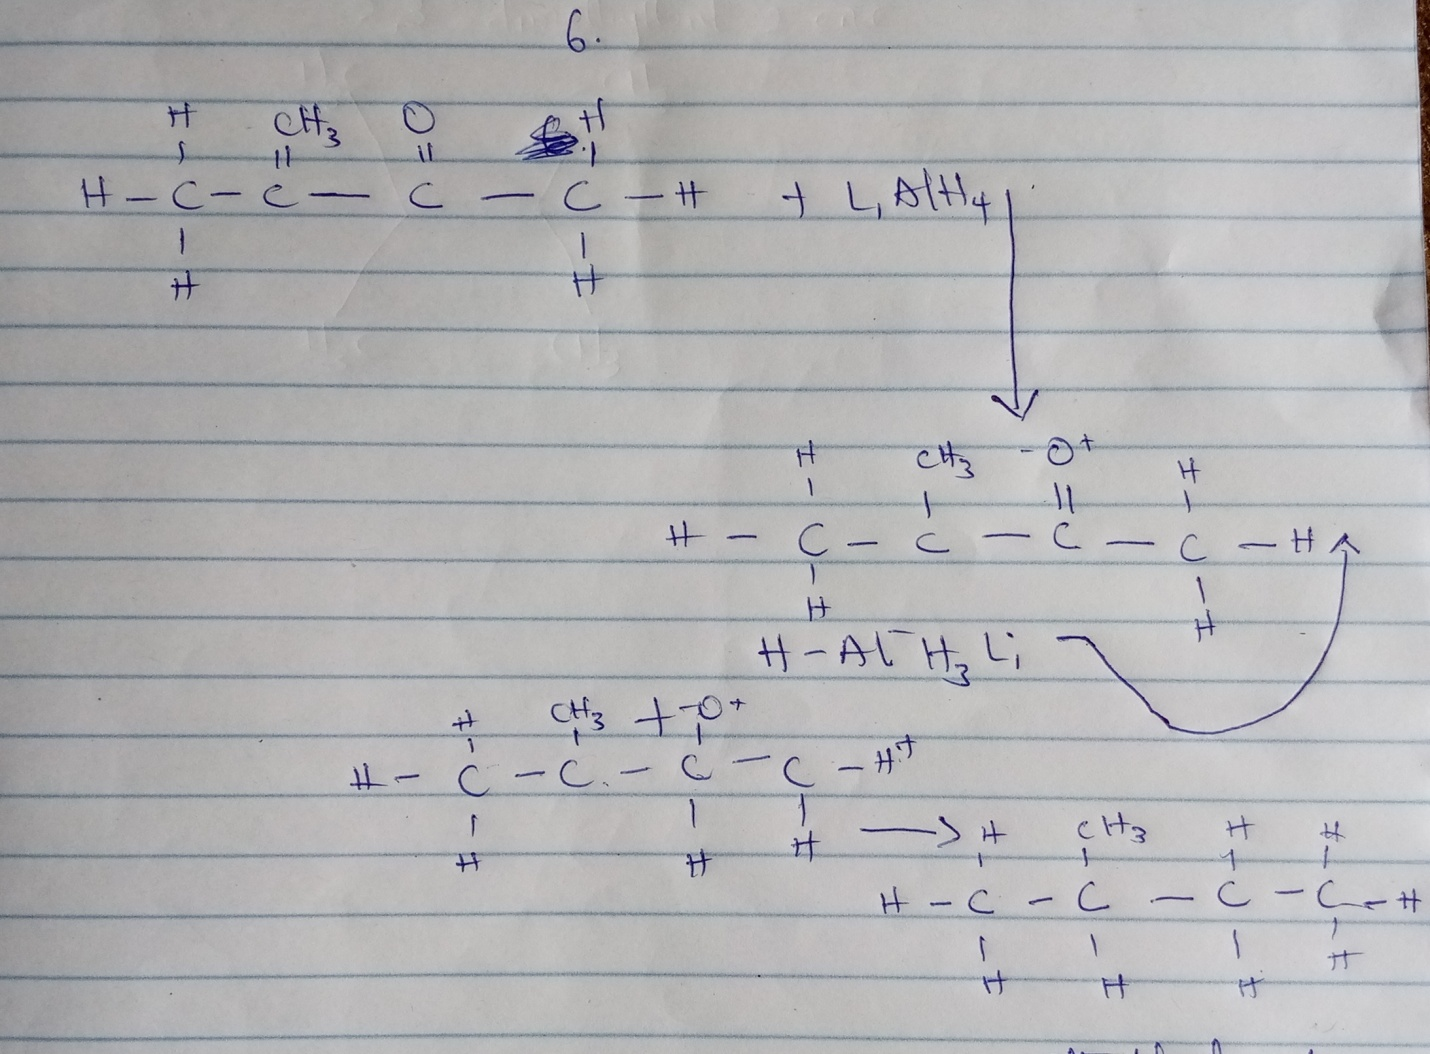 6.
H CH3 O H
H - C - C - C - C - H + LiAlH4
H H
H CH3 - O + H
H - C - C - C - C - H
H H
H - Al - H3 Li
H CH3 + - O +
H - C - C - C - C - H +
H H H
H CH3 H H
H - C - C - C - C - H
H H H H